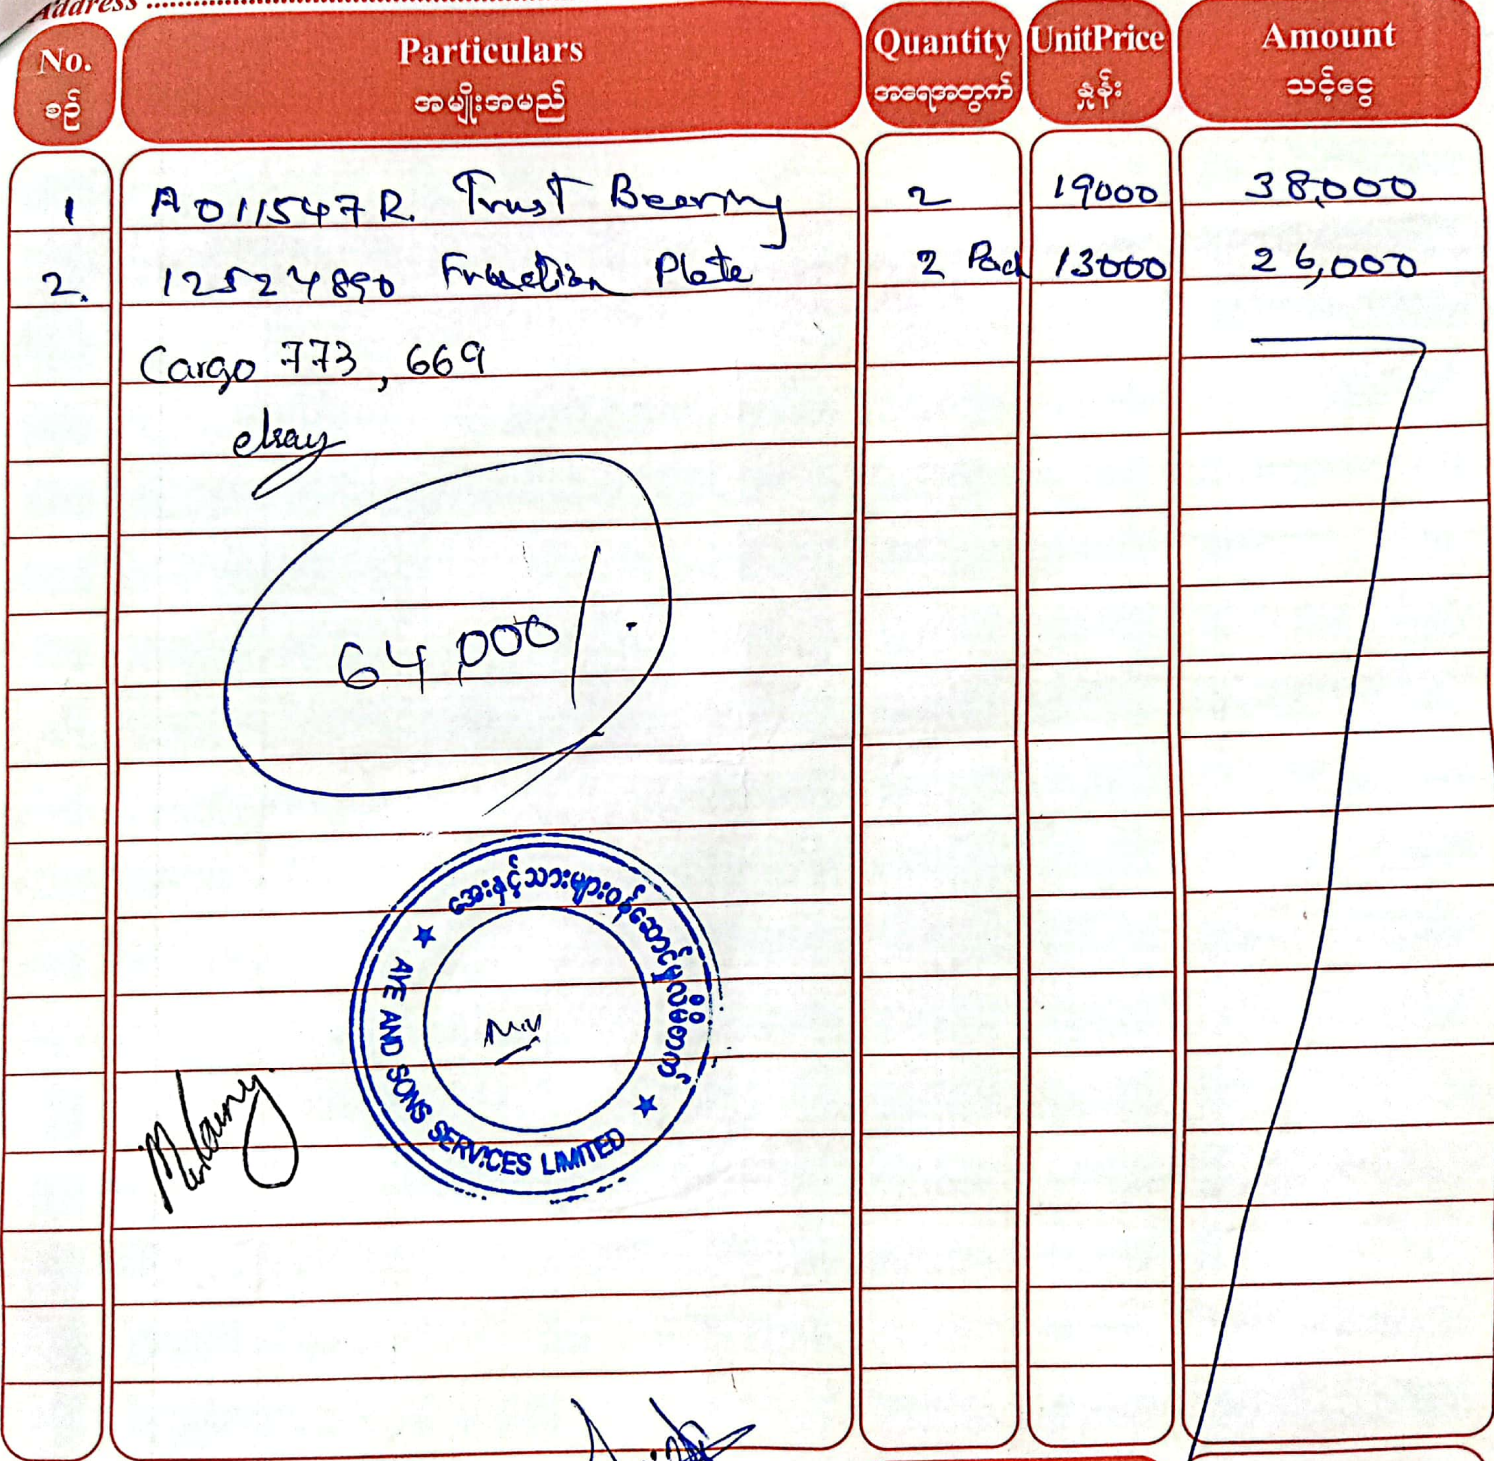 Address
No. Particulars Quantity UnitPrice Amount
စဉ် အမျိုးအမည် အရေအတွက် နှုန်း သင့်ငွေ
1 A011547R. Trust Bearing 2 19000 38,000
2. 12524890 Friction Plate 2 Pad 13000 26,000
Cargo 773, 669
64,000/.
အေးနှင့်သားများဝန်ဆောင်မှုလီမိတက်
AYE AND SONS SERVICES LIMITED